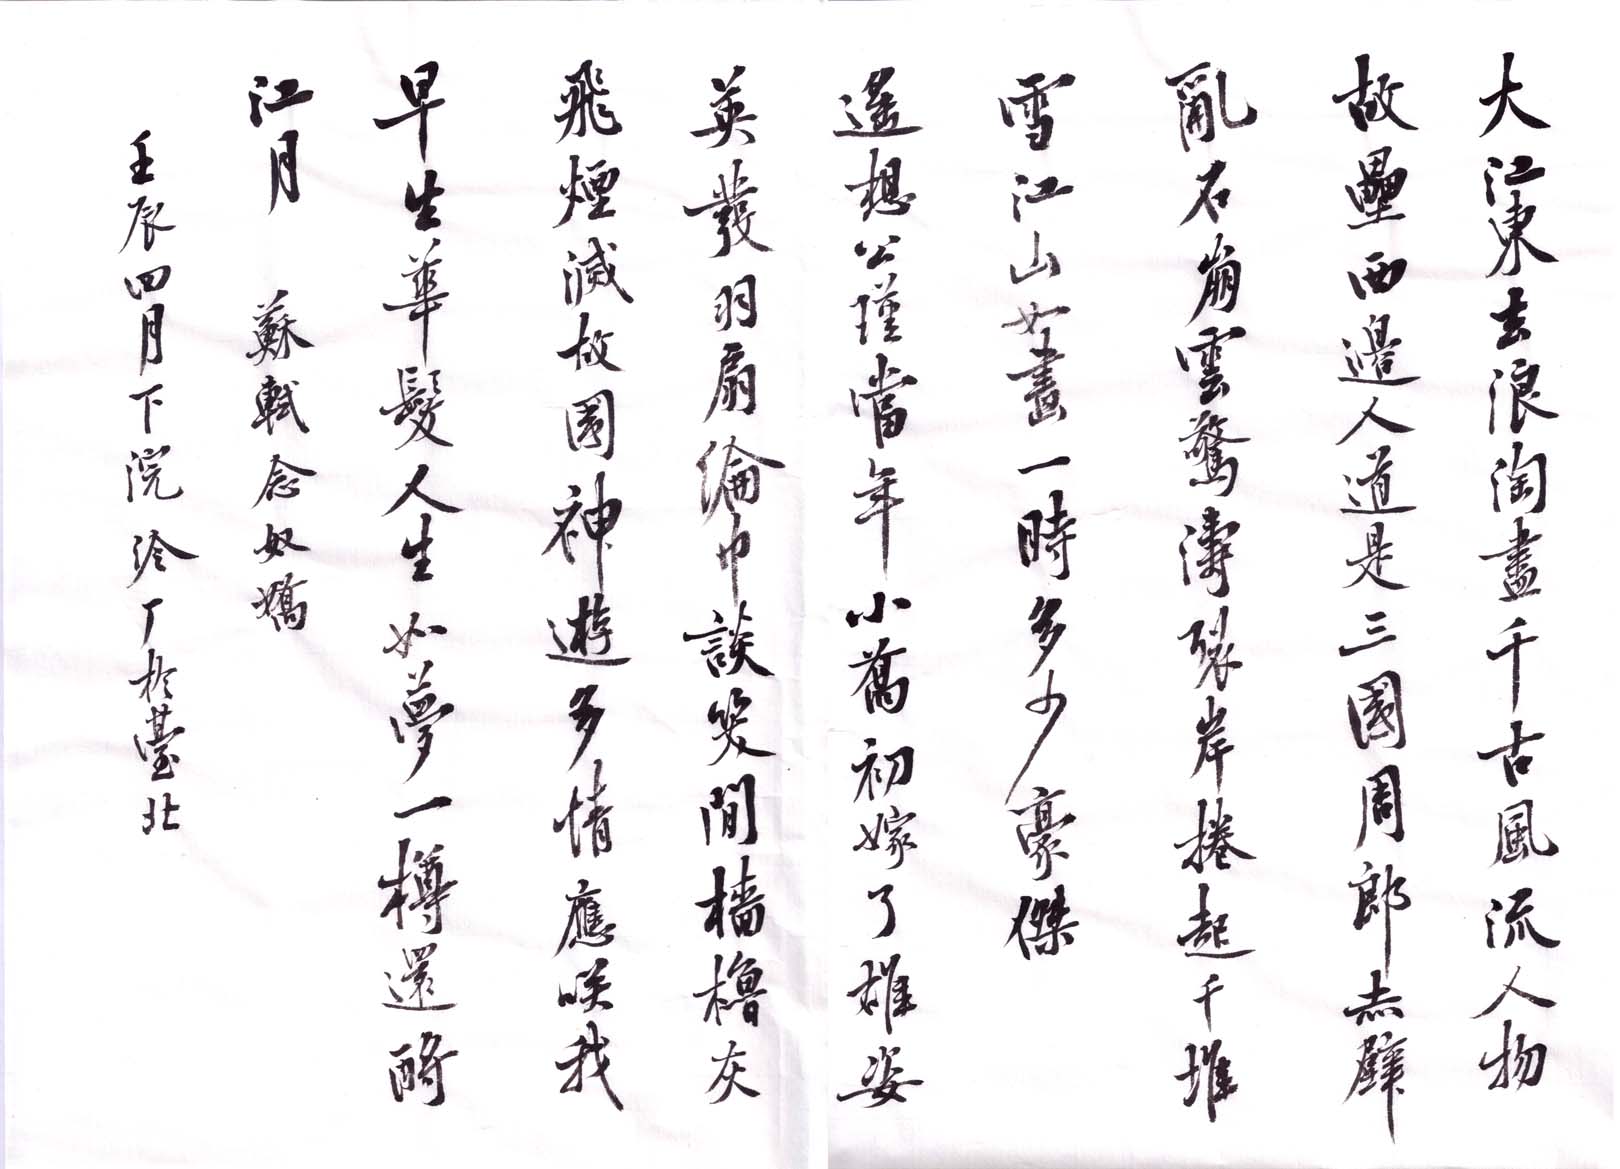 大江東去浪淘盡千古風流人物
故壘西邊人道是三國周郎赤壁
亂石崩雲驚濤裂岸捲起千堆
雪江山如畫一時多少豪傑
遙想公瑾當年小喬初嫁了雄姿
英發羽扇綸巾談笑間檣櫓灰
飛煙滅故國神遊多情應咲我
早生華髮人生如夢一樽還酹
江月 蘇軾念奴嬌
壬辰四月下浣 於臺北